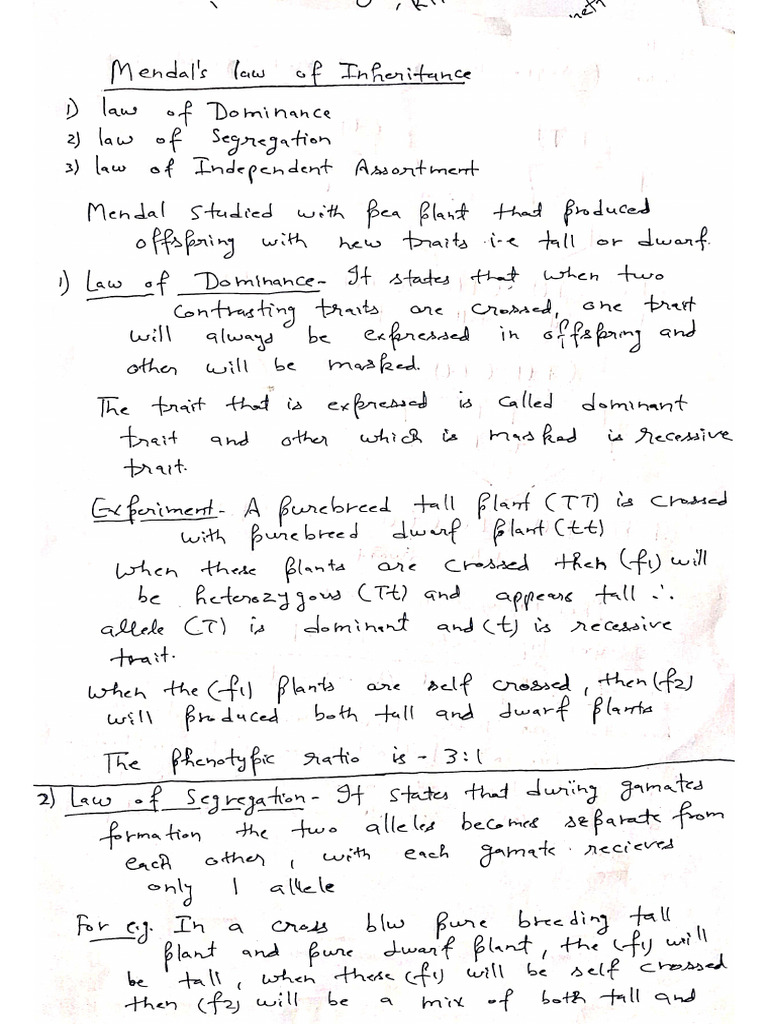 Mendal's law of Inheritance
1) law of Dominance
2) law of Segregation
3) law of Independent Assortment
Mendal studied with pea plant that produced
offspring with new traits i-e tall or dwarf.
1) Law of Dominance - It states that when two
contrasting traits are crossed, one trait
will always be expressed in offspring and
other will be masked.
The trait that is expressed is called dominant
trait and other which is masked is recessive
trait.
Experiment - A purebreed tall plant (TT) is crossed
with purebreed dwarf plant (tt)
When these plants are crossed then (f1) will
be heterozygous (Tt) and appears tall ∴
allele (T) is dominant and (t) is recessive
trait.
When the (f1) plants are self crossed, then (f2)
will produced both tall and dwarf plants
The phenotypic ratio is - 3:1
2) Law of Segregation - It states that during gamates
formation the two alleles becomes separate from
each other, with each gamate recieves
only 1 allele
For e.g. In a cross b/w pure breeding tall
plant and pure dwarf plant, the (f1) will
be tall, when these (f1) will be self crossed
then (f2) will be a mix of both tall and